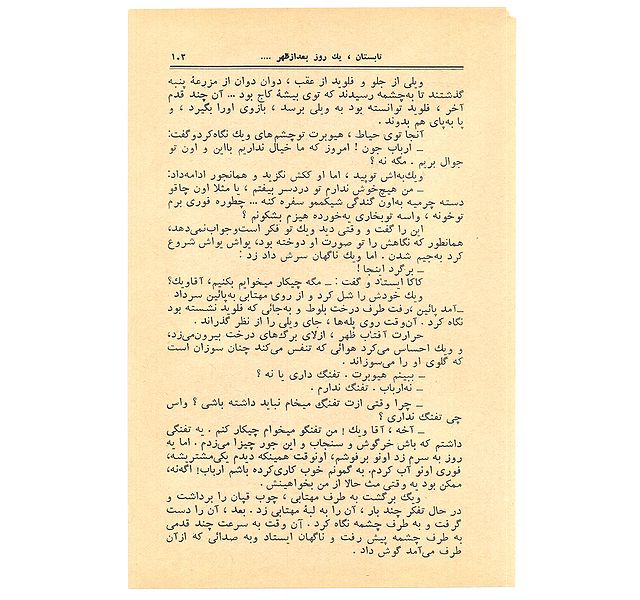 تابستان ، یك روز بعدازظهر .... ۱۰۳
ویلی از جلو و فلوید از عقب ، دوان دوان از مزرعۀ پنبه
گذشتند تا به‌چشمه رسیدند که توی بیشۀ کاج بود ... آن چند قدم
آخر ، فلوید توانسته بود به ویلی برسد ، بازوی اورا بگیرد ، و
پا به‌پای هم بدوند .
آنجا توی حیاط ، هیوبرت توچشم‌های ویك نگاه‌کردوگفت:
ـ ارباب جون ! امروز که ما خیال نداریم بااین و اون تو
جوال بریم . مگه نه ؟
ویك‌به‌اش توپید ، اما او ککش نگزید و همانجور ادامه‌داد:
ـ من هیچ‌خوش ندارم تو دردسر بیفتم ، یا مثلا اون چاقو
دسته چرمیه به‌اون گندگی شیکممو سفره کنه ... چطوره فوری برم
توخونه ، واسه توبخاری یه‌خورده هیزم بشکونم ؟
این را گفت و وقتی دید ویك تو فکر است‌وجواب‌نمی‌دهد،
همانطور که نگاهش را تو صورت او دوخته بود، یواش یواش شروع
کرد به‌جیم شدن . اما ویك ناگهان سرش داد زد :
ـ برگرد اینجا !
کاکا ایستاد و گفت : ـ مگه چیکار میخوایم بکنیم، آقاویك؟
ویك خودش را شل کرد و از روی مهتابی به‌پائین سرداد
ـ‌آمد پائین ،رفت طرف درخت بلوط و به‌جائی که فلوید نشسته بود
نگاه کرد . آن‌وقت روی پله‌ها ، جای ویلی را از نظر گذراند .
حرارت آفتاب ظهر ، ازلای برگ‌های درخت بیرون‌می‌زد،
و ویك احساس می‌کرد هوائی که تنفس می‌کند چنان سوزان است
که گلوی او را می‌سوزاند .
ـ ببینم هیوبرت . تفنگ داری یا نه ؟
ـ نه‌ارباب . تفنگ ندارم .
ـ چرا وقتی ازت تفنگ میخام نباید داشته باشی ؟ واس
چی تفنگ نداری ؟
ـ آخه ، آقا ویك ! من تفنگو میخوام چیکار کنم . یه تفنگی
داشتم که باش خرگوش و سنجاب و این جور چیزا می‌زدم . اما یه
روز به سرم زد اونو برفوشم، اونوقت همینکه دیدم یکی‌مشتریشه،
فوری اونو آب کردم. به گمونم خوب کاری‌کرده باشم ارباب! اگه‌نه،
ممکن بود یه وقتی مث حالا از من بخواهینش .
ویك برگشت به طرف مهتابی ، چوب قپان را برداشت و
در حال تفکر چند بار ، آن را به لبۀ مهتابی زد . بعد ، آن را دست
گرفت و به طرف چشمه نگاه کرد . آن وقت به سرعت چند قدمی
به طرف چشمه پیش رفت و ناگهان ایستاد وبه صدائی که ازآن
طرف می‌آمد گوش داد .